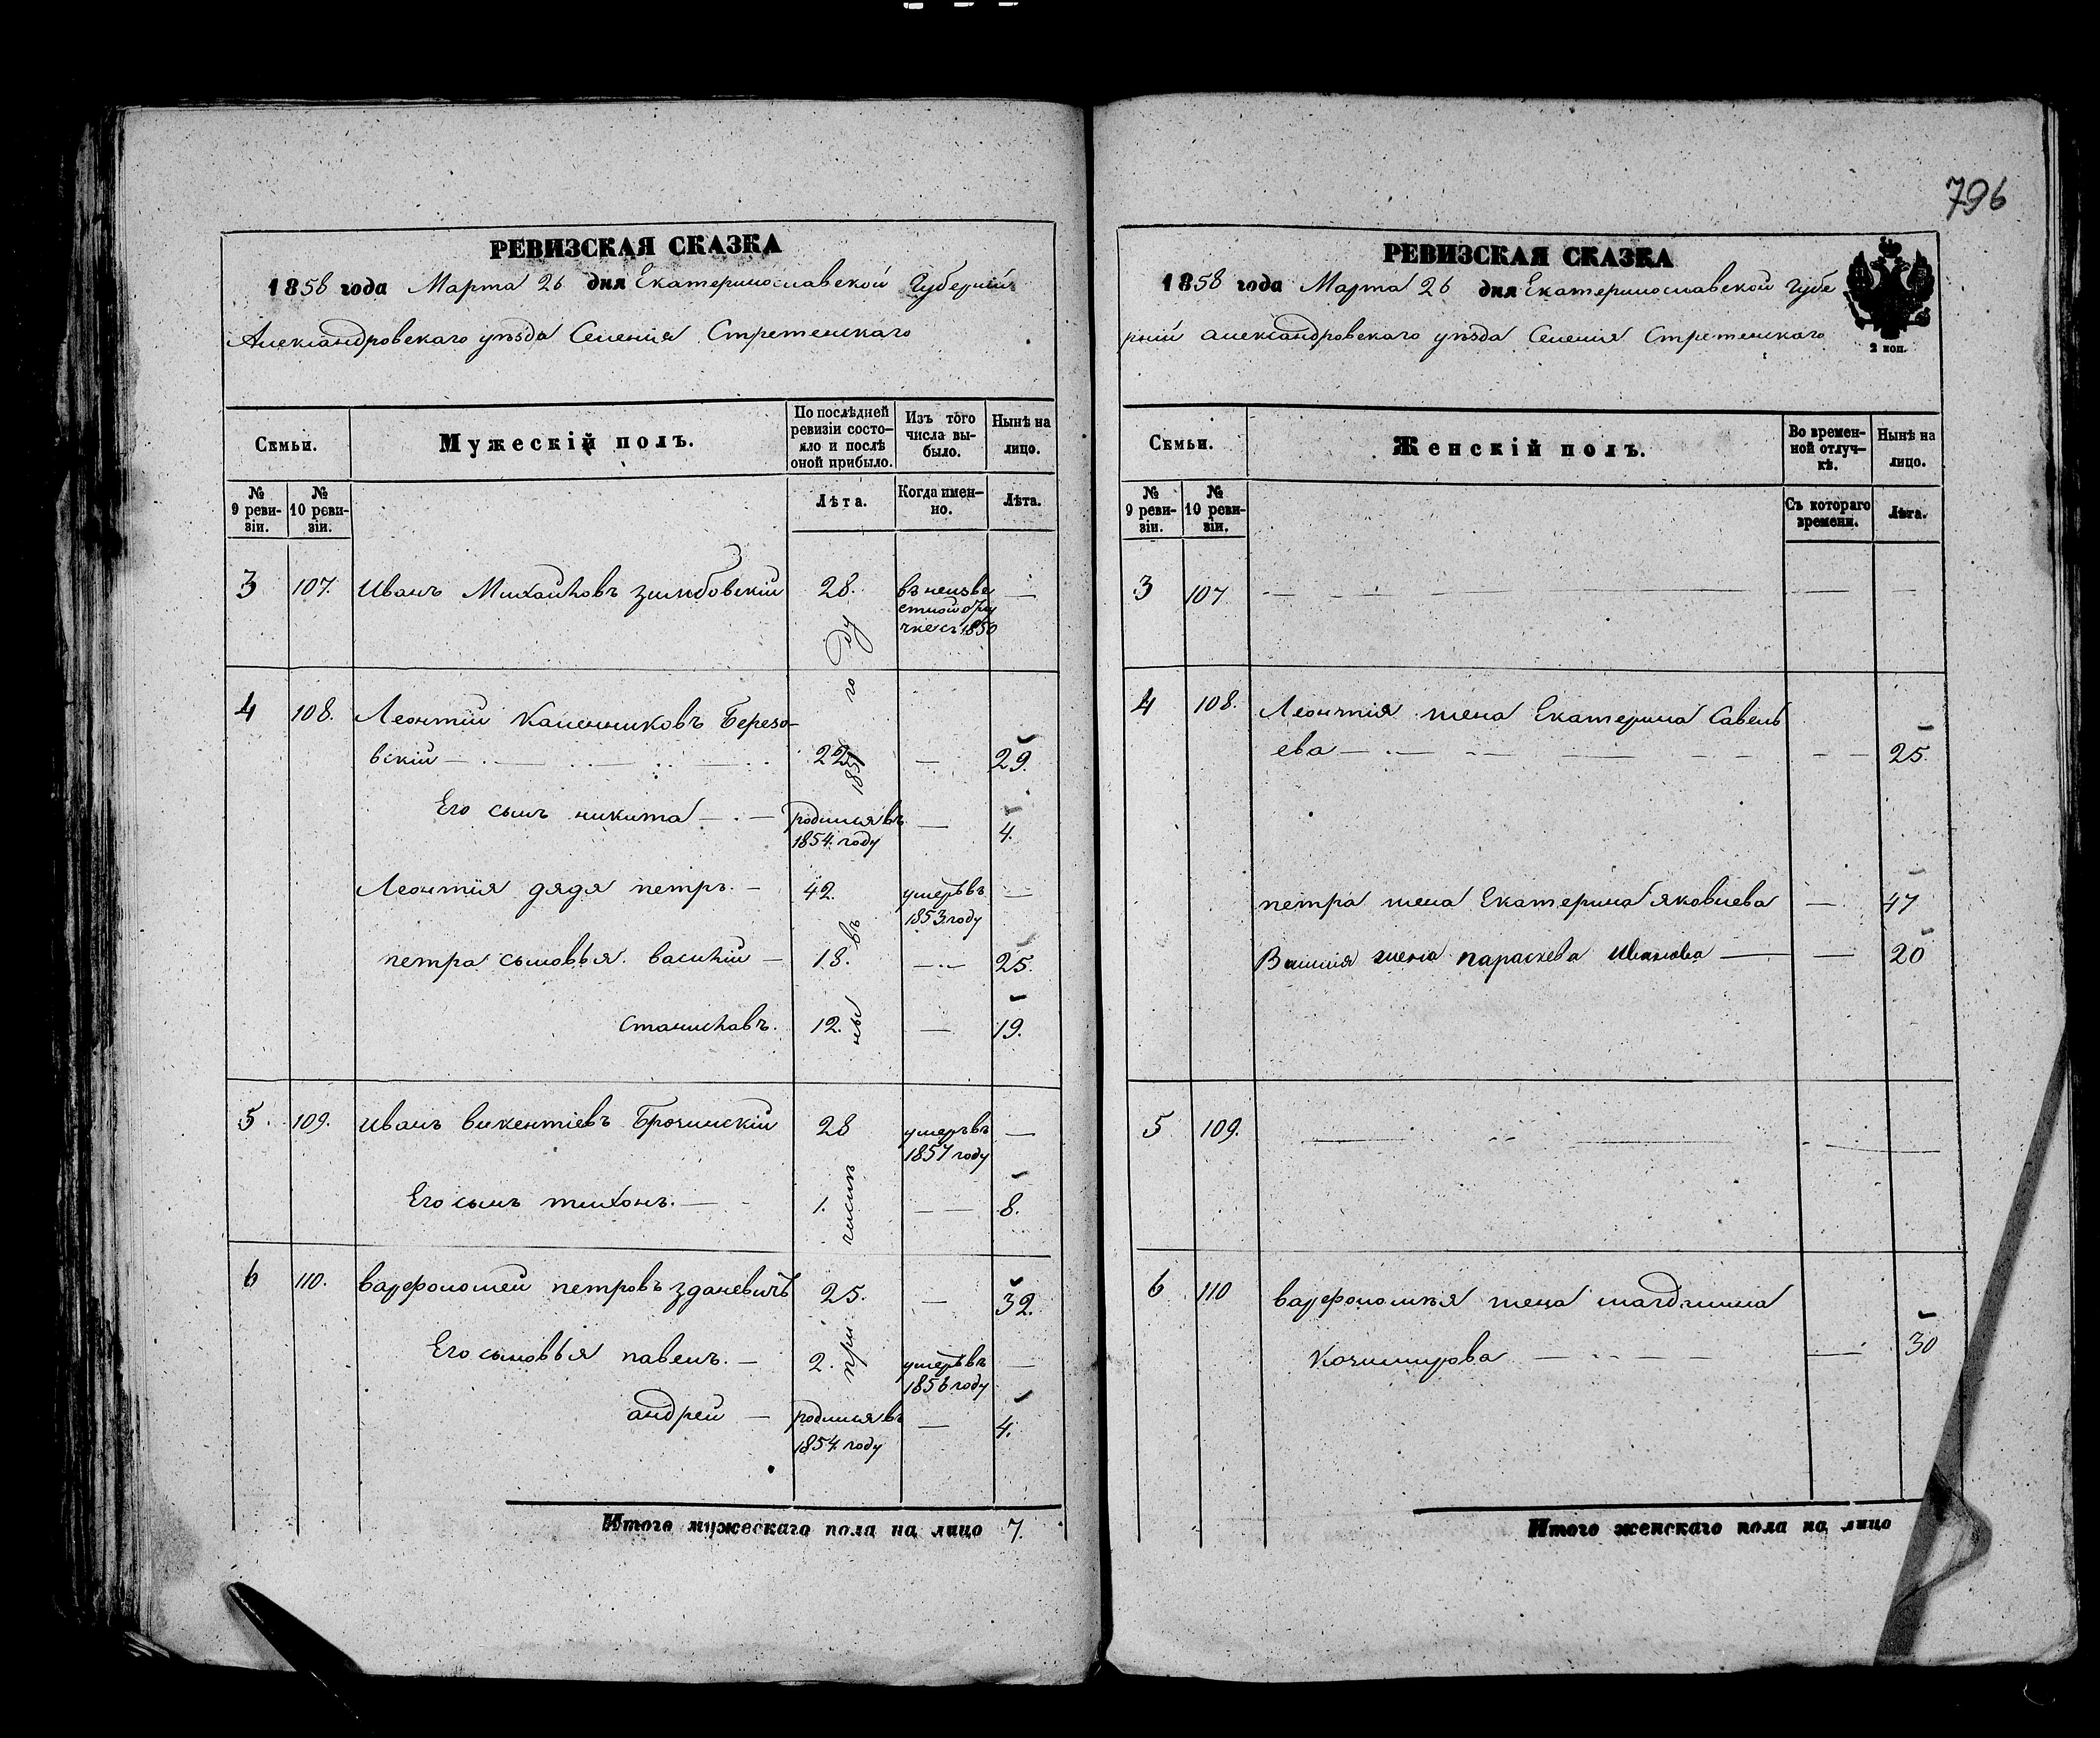 796
РЕВИЗСКАЯ СКАЗКА
1858 года Марта 26 дня Екатеринославской Губерніи
Александровскаго уѣзда Селенія Стретенскаго
Семьи.
Мужескій полъ.
По послѣдней ревизіи состояло и послѣ оной прибыло.
Изъ того числа выбыло.
Нынѣ на лицо.
№ 9 ревизіи.
№ 10 ревизіи.
Лѣта.
Когда именно.
Лѣта.
3 107. Иванъ Михайловъ 28. въ неизве —
стной отлу
чке съ 1850
4 108. Леонтій Березо-
вскій — 22 — 29.
Его сынъ никита — родился въ — 4.
1854. году
Леонтія дядя петръ. — 42. умеръ въ —
1853 году
петра сыновья василій — 18. — 25.
станиславъ. 12. — 19.
5. 109. Иванъ викентіевъ 28 умеръ въ —
1857 году
Его сынъ тихонъ. — 1. — 8.
6 110. варфоломей петровъ зданевичъ 25. — 32.
Его сыновья павелъ. — 2. умеръ въ —
1856 году
андрей — родился въ — 4.
1854. году
причислены въ 1851 году
Итого мужескаго пола на лицо 7.
РЕВИЗСКАЯ СКАЗКА
1858 года Марта 26 дня Екатеринославской Губе
рніи александровскаго уѣзда Селенія Стретенскаго
2 коп.
Семьи.
Женскій полъ.
Во временной отлучкѣ.
Нынѣ на лицо.
№ 9 ревизіи.
№ 10 ревизіи.
Съ котораго времени.
Лѣта.
3 107 — — —
4 108. Леонтія жена Екатерина Савель
ева — — 25.
петра жена Екатерина яковлева — 47
Василія жена параскева Иванова — — 20
5 109. — — —
6 110 варфоломѣя жена магдалина
Казимирова — — 30
Итого женскаго пола на лицо